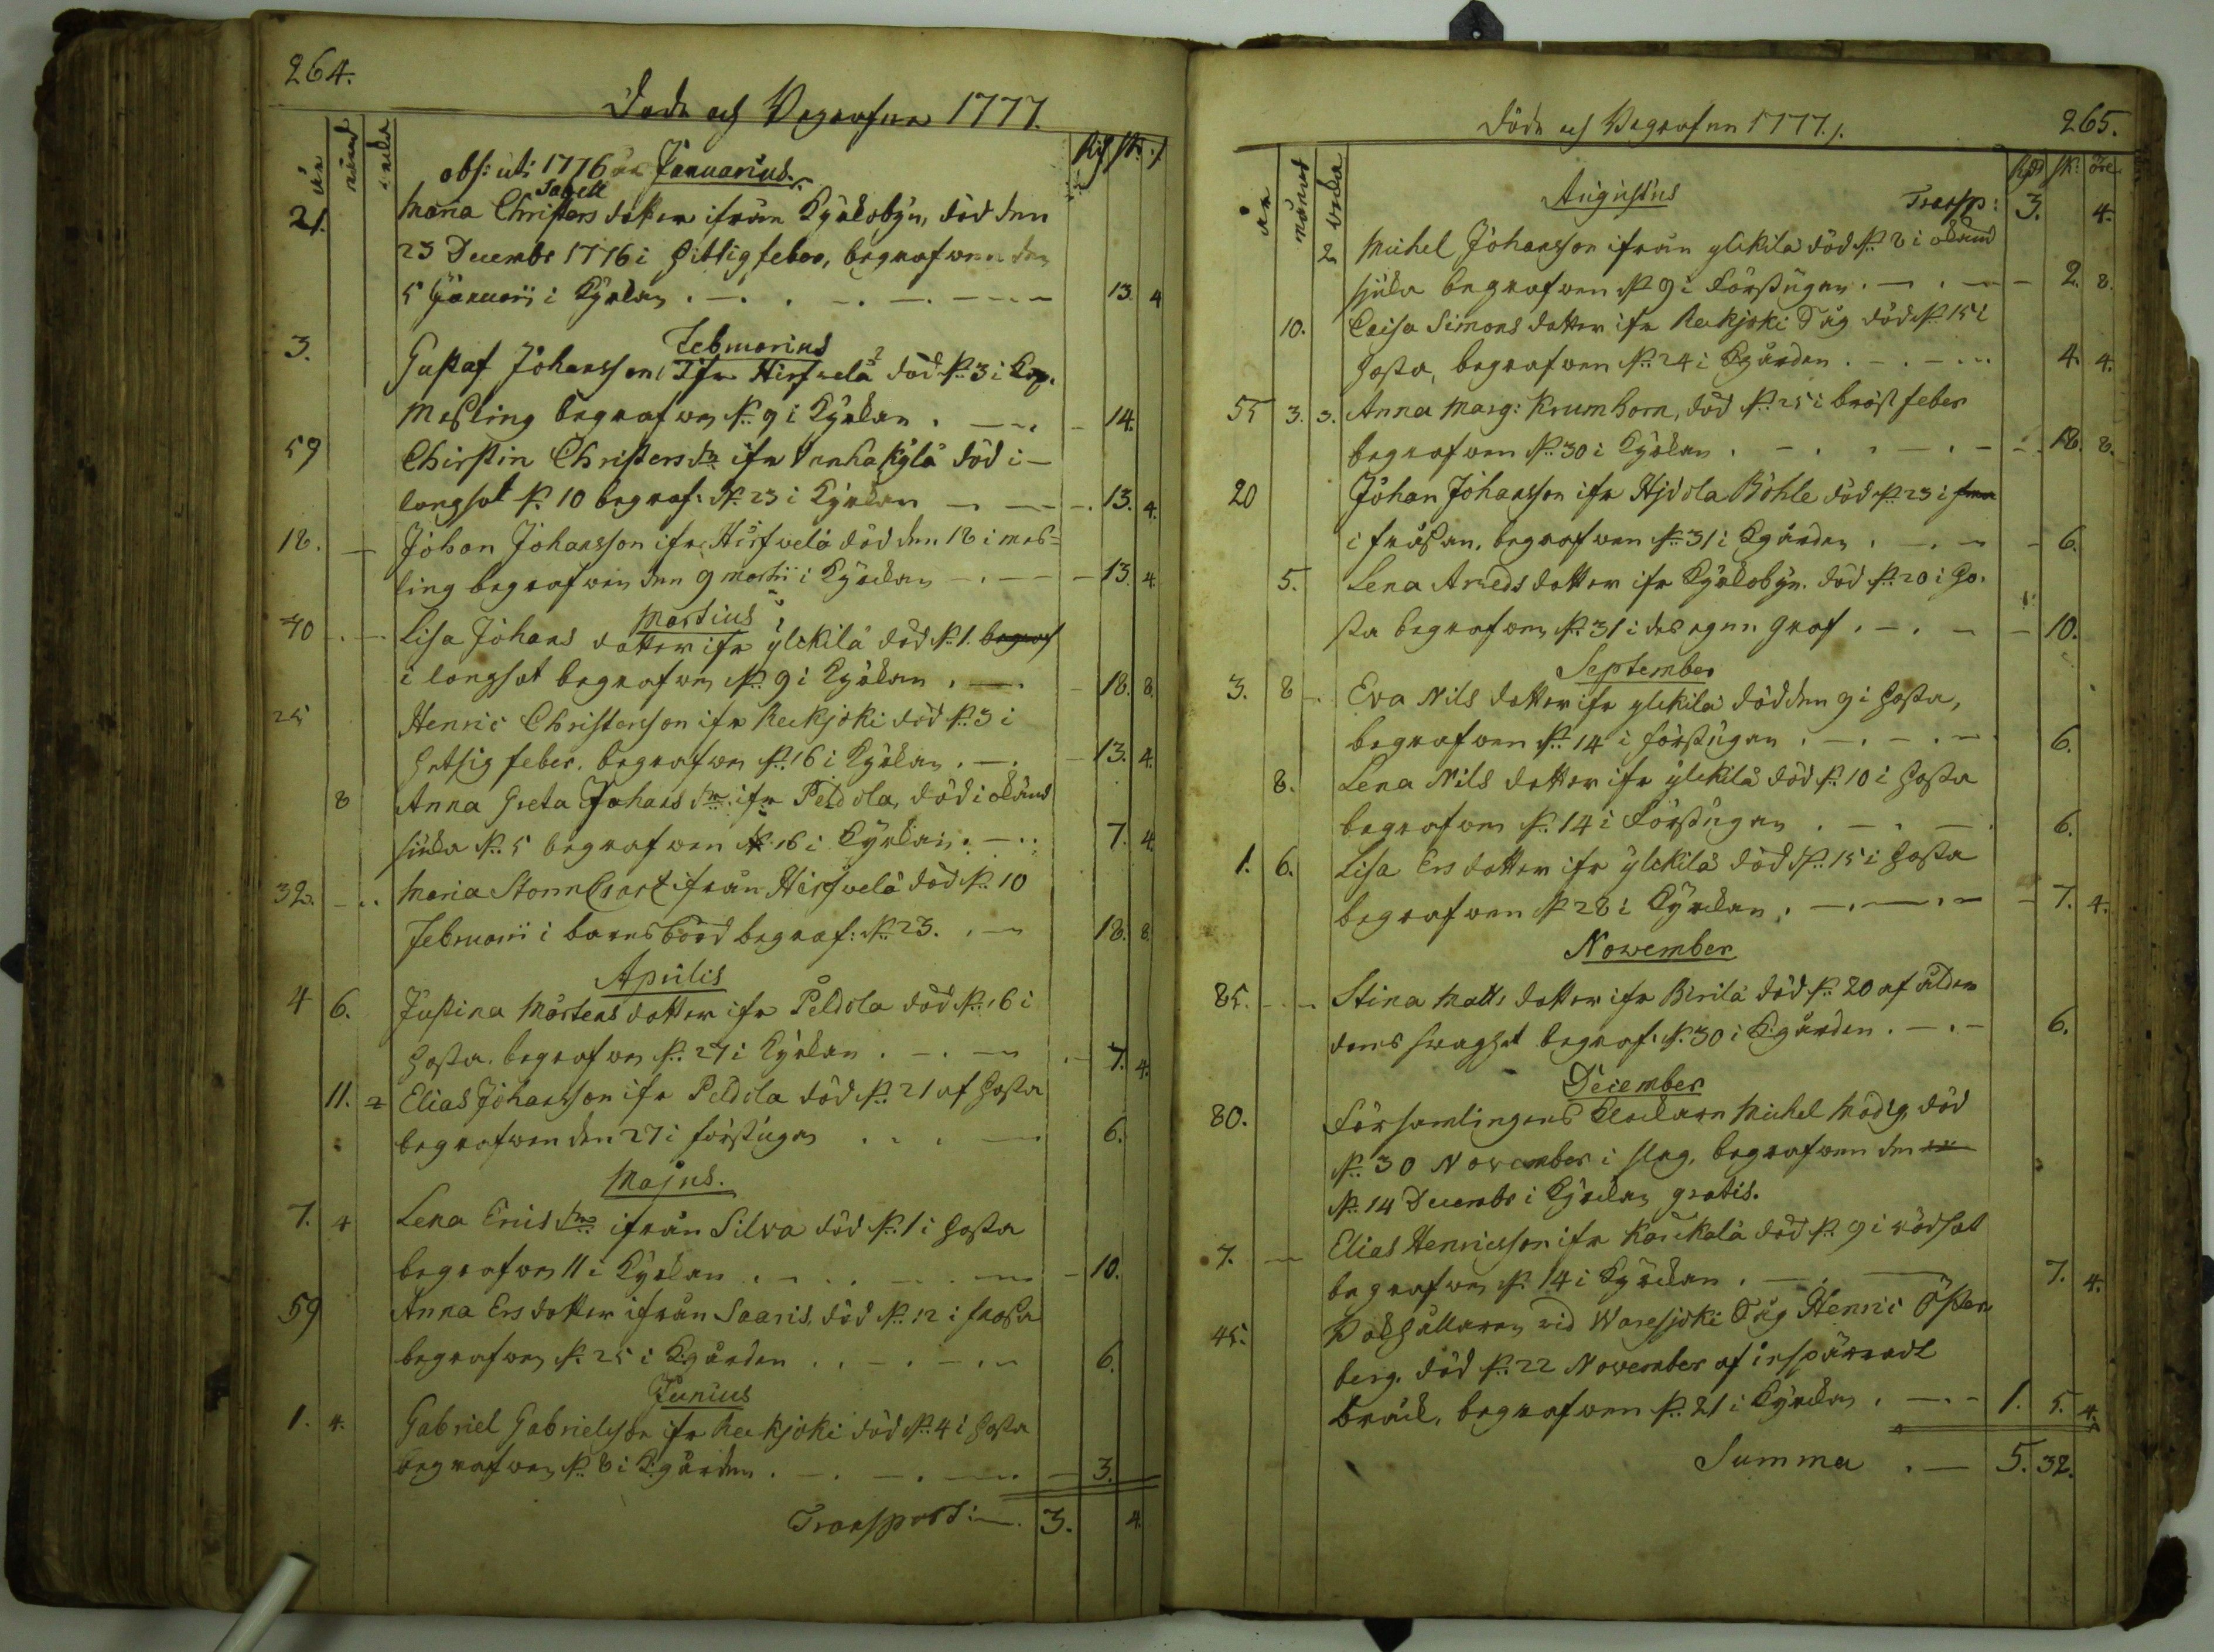 264.
Döde och Begrafne 1777.
år månad veckor
obs: uti 1776 års Januarius.
Rd sk. .
Sabell
21. Maria Christers dotter ifrån Kyrkobyn, död den
23 Decembr 1776 i Hitsig feber, begrafwen den
5 Januarii i Kyrkan . — . . — . — . — — — 13. 4
Februarius
3. Gustaf Johansson, Ifr Hirfvelä död d. 3 i Kop.
Messling begrafwen d. 9 i Kyrkan . — — . — 14.
59 Chirstin Christersdr ifr Vanhakylä död i —
långsot d. 10 begraf: d. 23 i Kyrkan — — — . 13. 4.
18. — Johan Johansson ifr Hirfvelä död den 18 i mess=
ling begrafwen den 9 martii i Kyrkan — . — — — 13. 4.
Martius
40 — . — Lisa Johans dotter ifr ylikilä död d. 1. begraf
i långsot begrafwen d. 9 i Kyrkan . — . — 18. 8.
25 Henric Christersson ifr Reckjoki död d. 3 i
Hetsig feber, begrafwen d. 16 i Kyrkan . — . — 13. 4.
8 Anna Greta Johans dr. ifr Peldola, död i okänd
siuka d. 5 begrafwen d. 16 i Kyrkan . — . . 7. 4.
32. — . . Maria Stormbrort ifrån Hirfvelä död d. 10
Februarii i barnsbörd begraf: d. 23. . — 18. 8.
Aprilis
4 6. Justina Mårtens dotter ifr Peldola död d. 16 i
Hosta. begrafwen d. 27 i Kyrkan . — . — . — 7. 4.
11. 2 Elias Johansson ifr Peldola död d. 21 af Hosta
begrafwen den 27 i förstugan . . . — 6.
Majus.
7. 4 Lena Erics dr ifrån Silva död d. 1 i Hosta
begrafwen 11 i Kyrkan . — . . — . — — 10.
59 Anna Ersdotter ifrån Saaris, död d. 12 i frossa
begrafwen d. 25 i K:gården . . — . — . — 6.
Junius
1. 4. Gabriel Gabrielsson ifr Reckjoki död d. 4 i Hosta
begrafwen d. 8 i K:gården . — . — . — — 3.
Transport: — . 3. 4.
Döde och Begrafne 1777.
265.
år månad veckor
Rdr sk: öre
Augustus
Transp: 3. 4.
2 Michel Johansson ifrån ylikilä död d. 8 i okänd
siuka begrafwen d. 9 i Förstugan . — . — — 2. 8.
10. Caisa Simons dotter ifr Reckjoki Såg död d. 15 i
Hosta, begrafwen d. 24 i K:gården . — . — . . 4. 4.
55 3. 3. Anna Marg: Krumhorn, död d. 25 i bröst feber
begrafwen d. 30 i Kyrkan . — . . — . — — . 18. 8.
20 Johan Johansson ifr Hjdola Böhle död d. 23 i
i fråssan, begrafwen d. 31 i K:gården . — . — — 6.
5. Lena Areds dotter ifr Kyrkobyn. död d. 20 i Ho=
sta begrafwen d. 31 i des egen Graf . — . — — 10.
September
3. 8 — Eva Nils dotter ifr ylikilä död den 9 i Hosta,
begrafwen d. 14 i förstugan . — . — . — . 6.
8. Lena Nils dotter ifr ylikilä död d. 10 i Hosta
begrafwen d. 14 i Förstugan . — . — . 6.
1. 6. Lisa Ersdotter ifr ylikilä död d. 15 i Hosta
begrafwen d. 28 i Kyrkan . — . — . — — 7. 4.
November
85. — . — Stina Matts dotter ifr Pirilä död d. 20 af ålder
doms swaghet begraf: d. 30 i K:gården . — . — 6.
December
80. Församlingens Klockare Michel Modeg, död
d. 30 November i slag, begrafwen den
d. 14 Decembr i Kyrkan gratis.
7. — Elias Henricsson ifr Karikala död d. 9 i rödsot
begrafwen d. 14 i Kyrkan . — . — 7. 4.
45. Bokhållaren vid Waresjoki Såg Henric Öster=
berg. död d. 22 November af inspärradt
bråck, begrafwen d. 21 i Kyrkan . — . — 1. 5. 4.
Summa . — 5. 32.